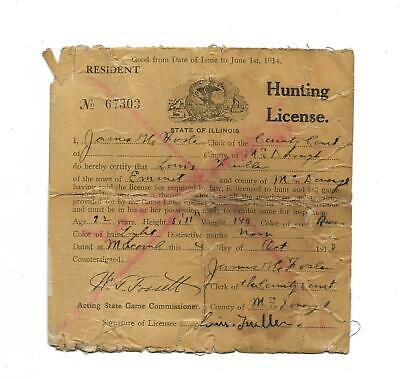 Good from Date of Issue to June 1st, 1914.
RESIDENT
Hunting
License.
No 67303
STATE OF ILLINOIS
I, James McFosle Clerk of the County Court
of County of McDonough
do hereby certify that Louis Fuller
of the town of Emmet and County of McDonough
having paid the license fee required by law, is licensed to hunt and kill game
by the Game Laws
and must be in his or her possession exposed for inspection.
Age 22 years Height 5.11 Weight 140 Color of eyes Brown
Color of hair Light Distinctive marks None
Dated at Macomb this 4 day of Oct 191
Countersigned: James McFosle
Clerk of the County Court
Acting State Game Commissioner. County of McDonough
Signature of Licensee Louis. Fuller